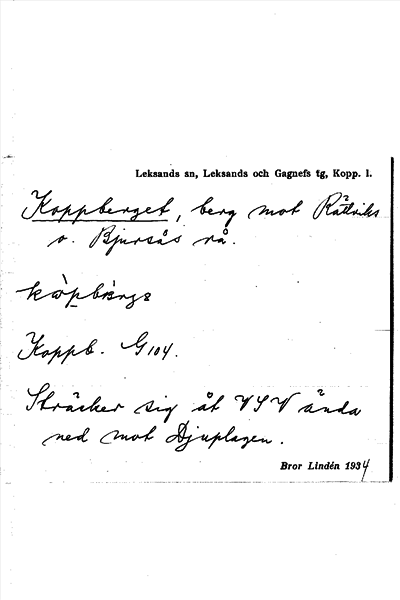 Leksands sn, Leksands och Gagnefs tg, Kopp. l.
Koppberget, berg mot Rättviks
o. Bjursås rå.
Koppb. G 104.
Sträcker sig åt VSV ända
ned mot Djuplagen.
Bror Lindén 1934